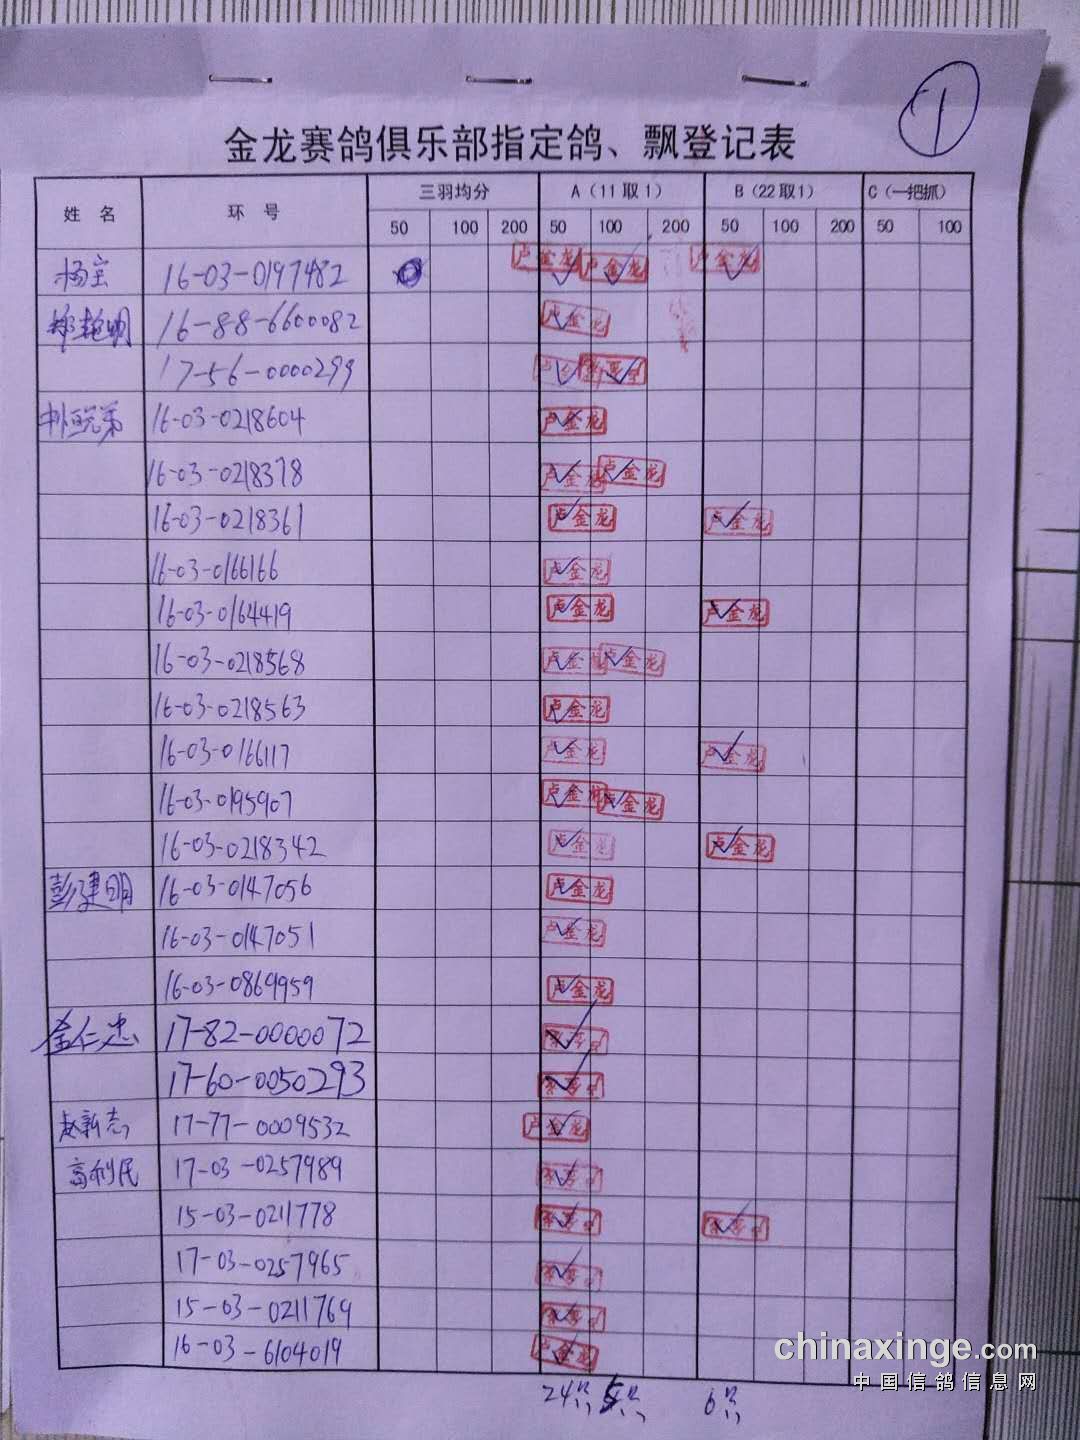 1
金龙赛鸽俱乐部指定鸽、飘登记表
姓 名 环 号 三羽均分 A（11取1） B（22取1） C（一把抓）
50 100 200 50 100 200 50 100 200 50 100
杨宝 16-03-0197482 卢金龙 卢金龙 卢金龙
16-88-6600082 卢金龙
17-56-0000299
朴四兄弟 16-03-0218604 卢金龙
16-03-0218378 卢金龙 卢金龙
16-03-0218361 卢金龙 卢金龙
16-03-0166166 卢金龙
16-03-0164419 卢金龙 卢金龙
16-03-0218568 卢金龙 卢金龙
16-03-0218563 卢金龙
16-03-0166117 卢金龙 卢金龙
16-03-0195907 卢金龙 卢金龙
16-03-0218342 卢金龙 卢金龙
彭建明 16-03-0147056 卢金龙
16-03-0147051 卢金龙
16-03-0869959 卢金龙
金仁忠 17-82-0000072
17-60-0050293
赵新志 17-77-0009532 卢金龙
高利民 17-03-0257989
15-03-0211778
17-03-0257965
15-03-0211769
16-03-6104019 卢金龙
24只 5只 6只
chinaxinge.com
中国信鸽信息网